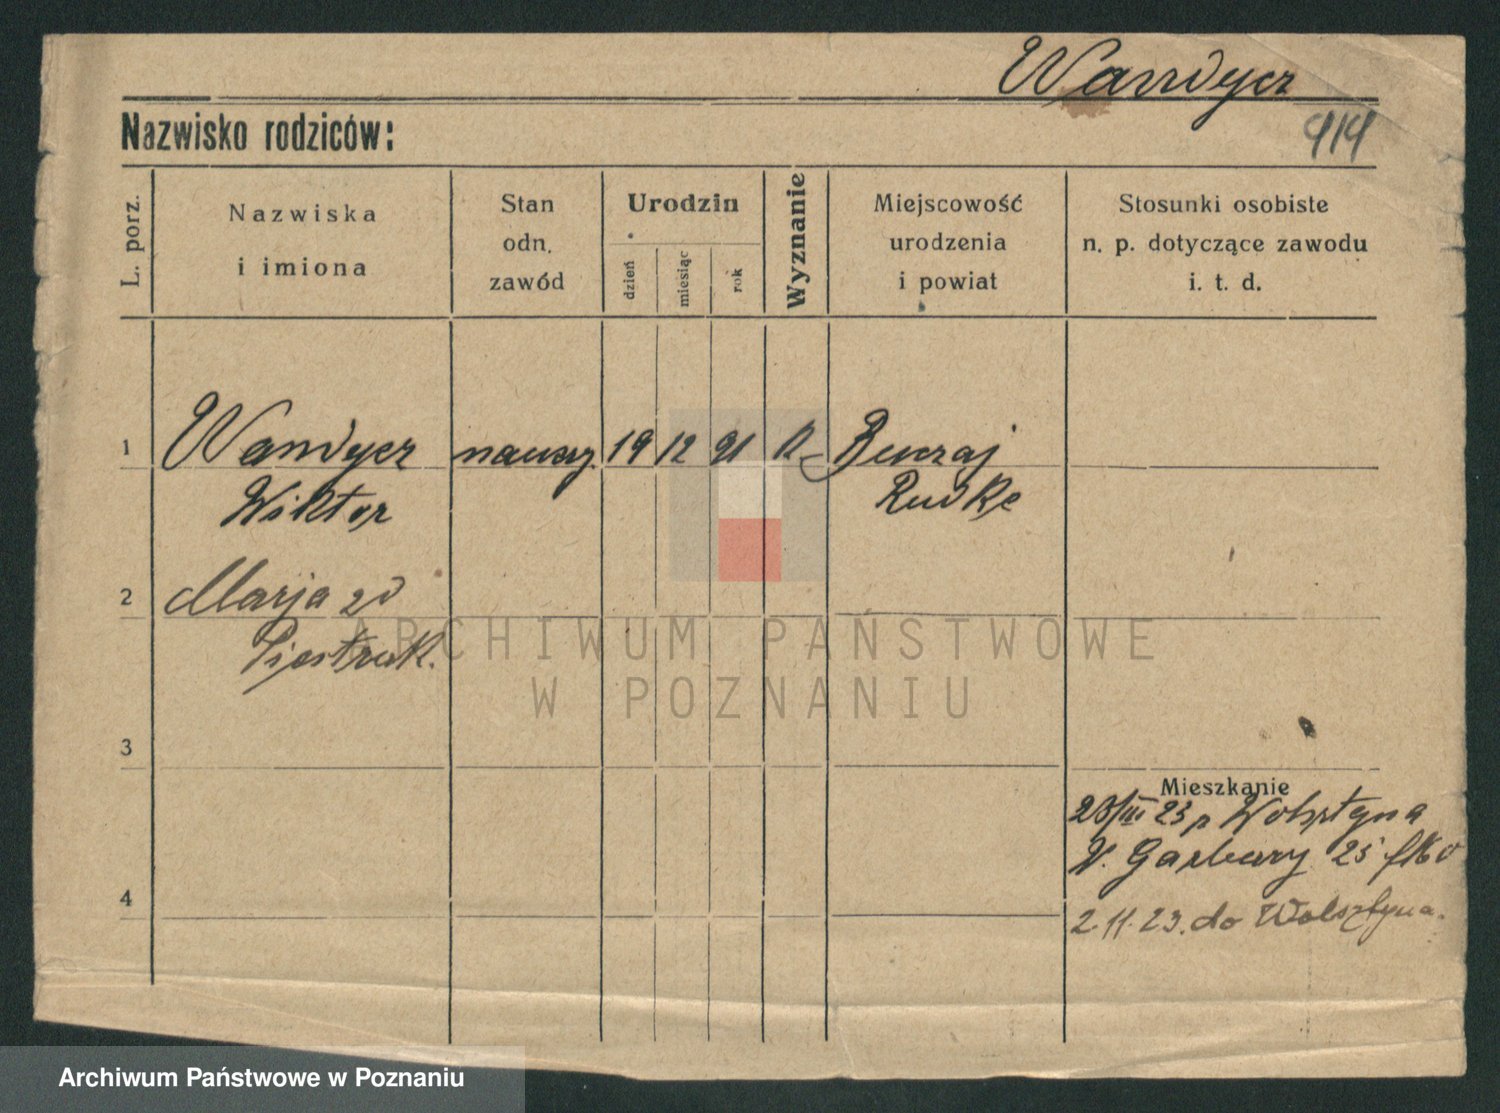 Wandycz
Nazwisko rodziców:
414
L. porz.
Nazwiska
i imiona
Stan
odn.
zawód
Urodzin
dzień
miesiąc
rok
Wyznanie
Miejscowość
urodzenia
i powiat
Stosunki osobiste
n. p. dotyczące zawodu
i. t. d.
1 Wandycz naucz. 19 12 91
Wiktor Rudke
2 Marja zd
Piestrak.
ARCHIWUM PAŃSTWOWE
W POZNANIU
3
Mieszkanie
23/III 23 z Wolsztyna
W. Garbary 25
4
2.11.23. do Wolsztyna.
Archiwum Państwowe w Poznaniu